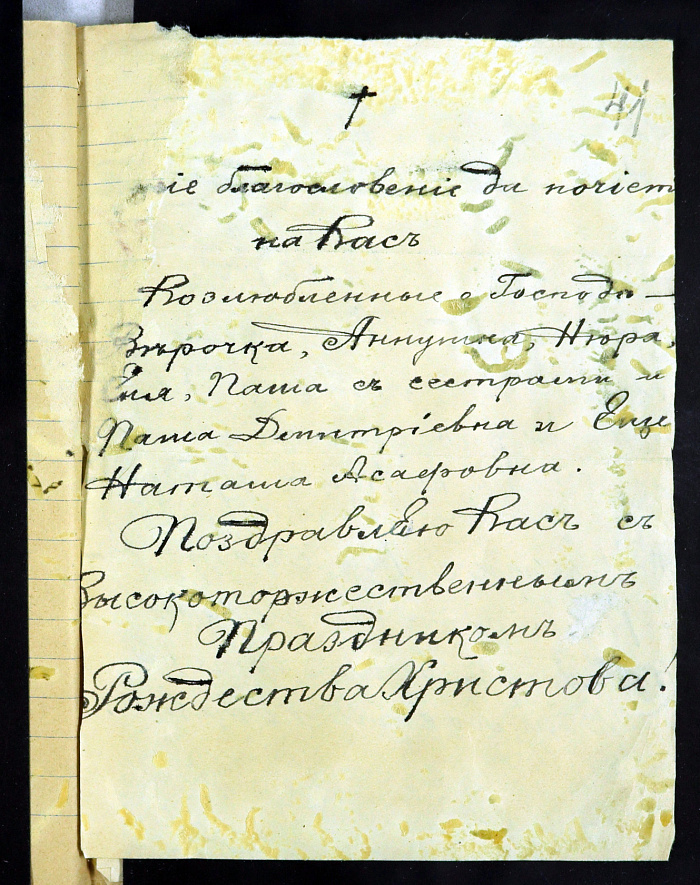 41
†
іе благословеніе да почіет
на Васъ
Возлюбленные о Господе —
Вѣрочка, Аннушка, Нюра,
Паша съ сестрами и
Паша Димитріевна и Еще
Наташа Асафовна.
ПоздравлЕю Васъ съ
Высокоторжественнымъ
Праздникомъ
Рождества Христова!